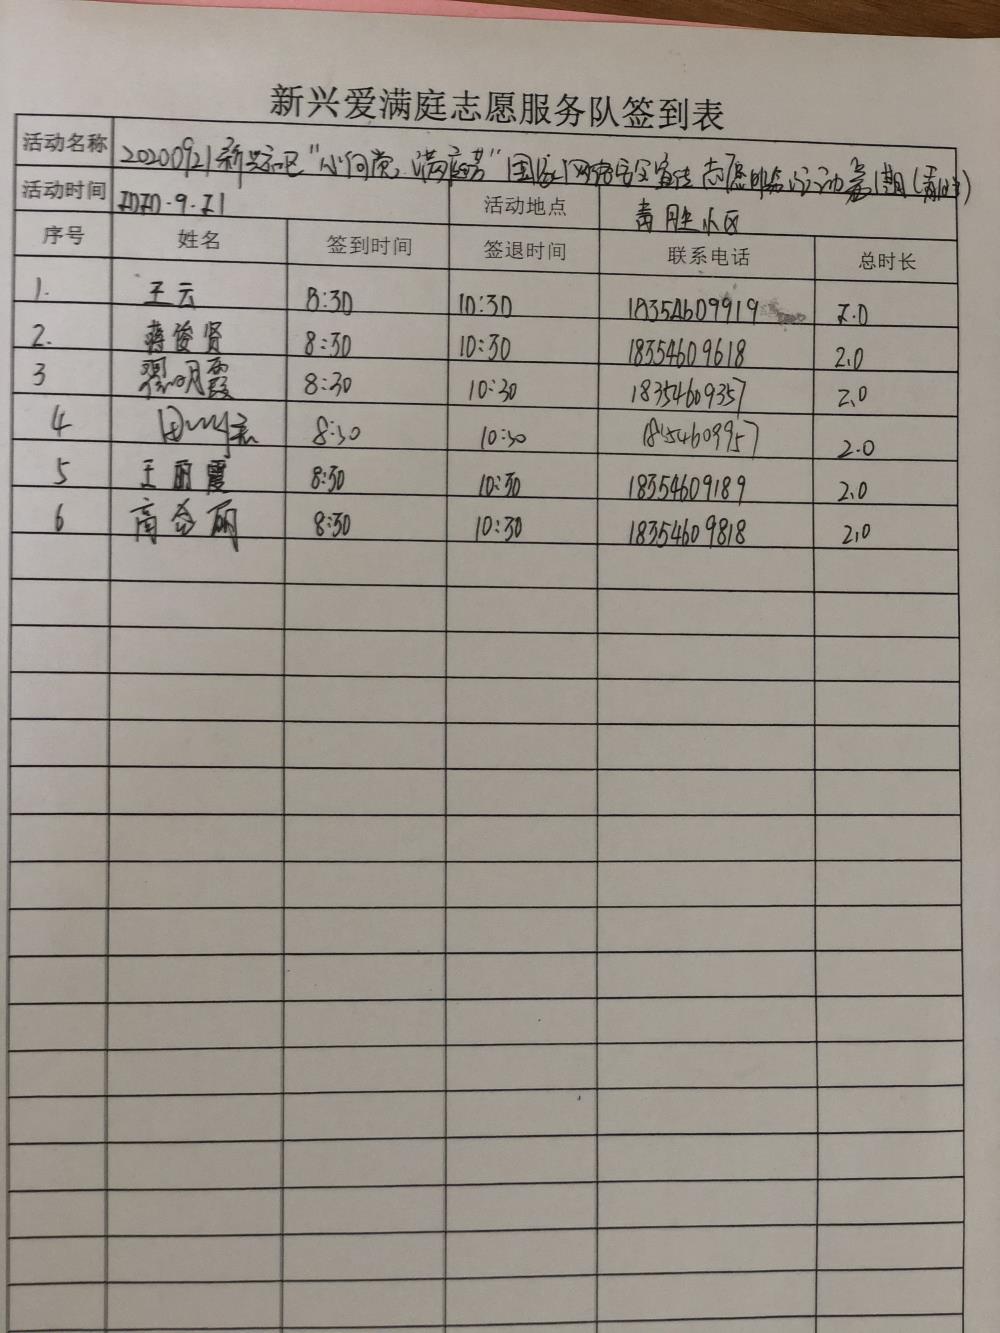 新兴爱满庭志愿服务队签到表
活动名称 20200921新兴社区"心向党·满庭芳"国家网络安全宣传志愿服务活动第1期(青胜)
活动时间 2020-9-21 活动地点 青胜小区
序号 姓名 签到时间 签退时间 联系电话 总时长
1. 王云 8:30 10:30 18354609919 2.0
2. 蒋俊贤 8:30 10:30 18354609618 2.0
3 明霞 8:30 10:30 18354609357 2.0
4 8:30 10:30 18354609957 2.0
5 王丽霞 8:30 10:30 18354609189 2.0
6 高 丽 8:30 10:30 18354609818 2.0